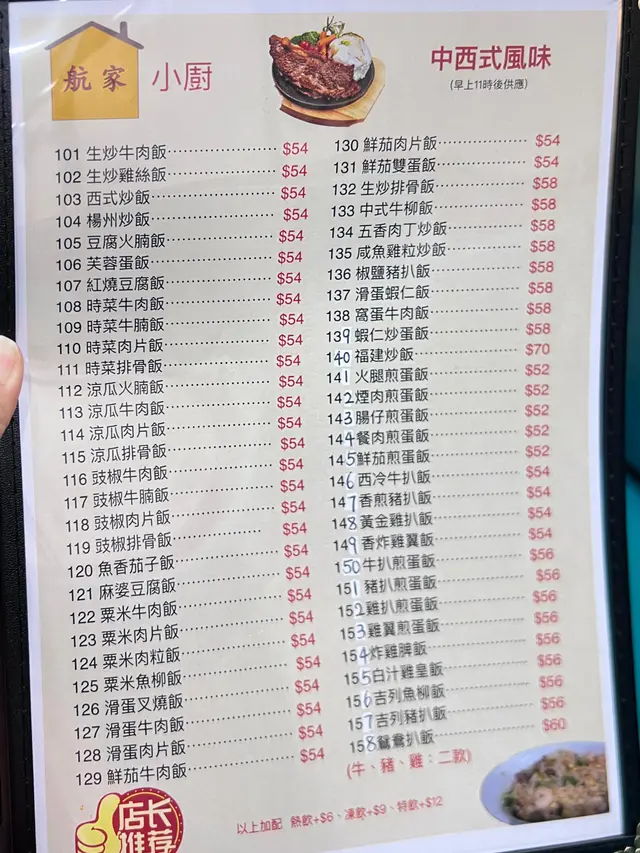 航家
小厨
中西式風味
(早上11時後供應)
101 生炒牛肉飯 $54
102 生炒雞絲飯 $54
103 西式炒飯 $54
104 楊州炒飯 $54
105 豆腐火腩飯 $54
106 芙蓉蛋飯 $54
107 紅燒豆腐飯 $54
108 時菜牛肉飯 $54
109 時菜牛腩飯 $54
110 時菜肉片飯 $54
111 時菜排骨飯 $54
112 涼瓜火腩飯 $54
113 涼瓜牛肉飯 $54
114 涼瓜肉片飯 $54
115 涼瓜排骨飯 $54
116 豉椒牛肉飯 $54
117 豉椒牛腩飯 $54
118 豉椒肉片飯 $54
119 豉椒排骨飯 $54
120 魚香茄子飯 $54
121 麻婆豆腐飯 $54
122 粟米牛肉飯 $54
123 粟米肉片飯 $54
124 粟米肉粒飯 $54
125 粟米魚柳飯 $54
126 滑蛋叉燒飯 $54
127 滑蛋牛肉飯 $54
128 滑蛋肉片飯 $54
129 鮮茄牛肉飯 $54
130 鮮茄肉片飯 $54
131 鮮茄雙蛋飯 $54
132 生炒排骨飯 $58
133 中式牛柳飯 $58
134 五香肉丁炒飯 $58
135 咸魚雞粒炒飯 $58
136 椒鹽豬扒飯 $58
137 滑蛋蝦仁飯 $58
138 窩蛋牛肉飯 $58
139 蝦仁炒蛋飯 $58
140 福建炒飯 $70
141 火腿煎蛋飯 $52
142 煙肉煎蛋飯 $52
143 腸仔煎蛋飯 $52
144 餐肉煎蛋飯 $52
145 鮮茄煎蛋飯 $52
146 西冷牛扒飯 $54
147 香煎豬扒飯 $54
148 黃金雞扒飯 $54
149 香炸雞翼飯 $54
150 牛扒煎蛋飯 $56
151 豬扒煎蛋飯 $56
152 雞扒煎蛋飯 $56
153 雞翼煎蛋飯 $56
154 炸雞脾飯 $56
155 白汁雞皇飯 $56
156 吉列魚柳飯 $56
157 吉列豬扒飯 $56
158 鴛鴦扒飯 $60
(牛、豬、雞：二款)
店长
推荐
以上加配 熱飲+$6、凍飲+$9、特飲+$12